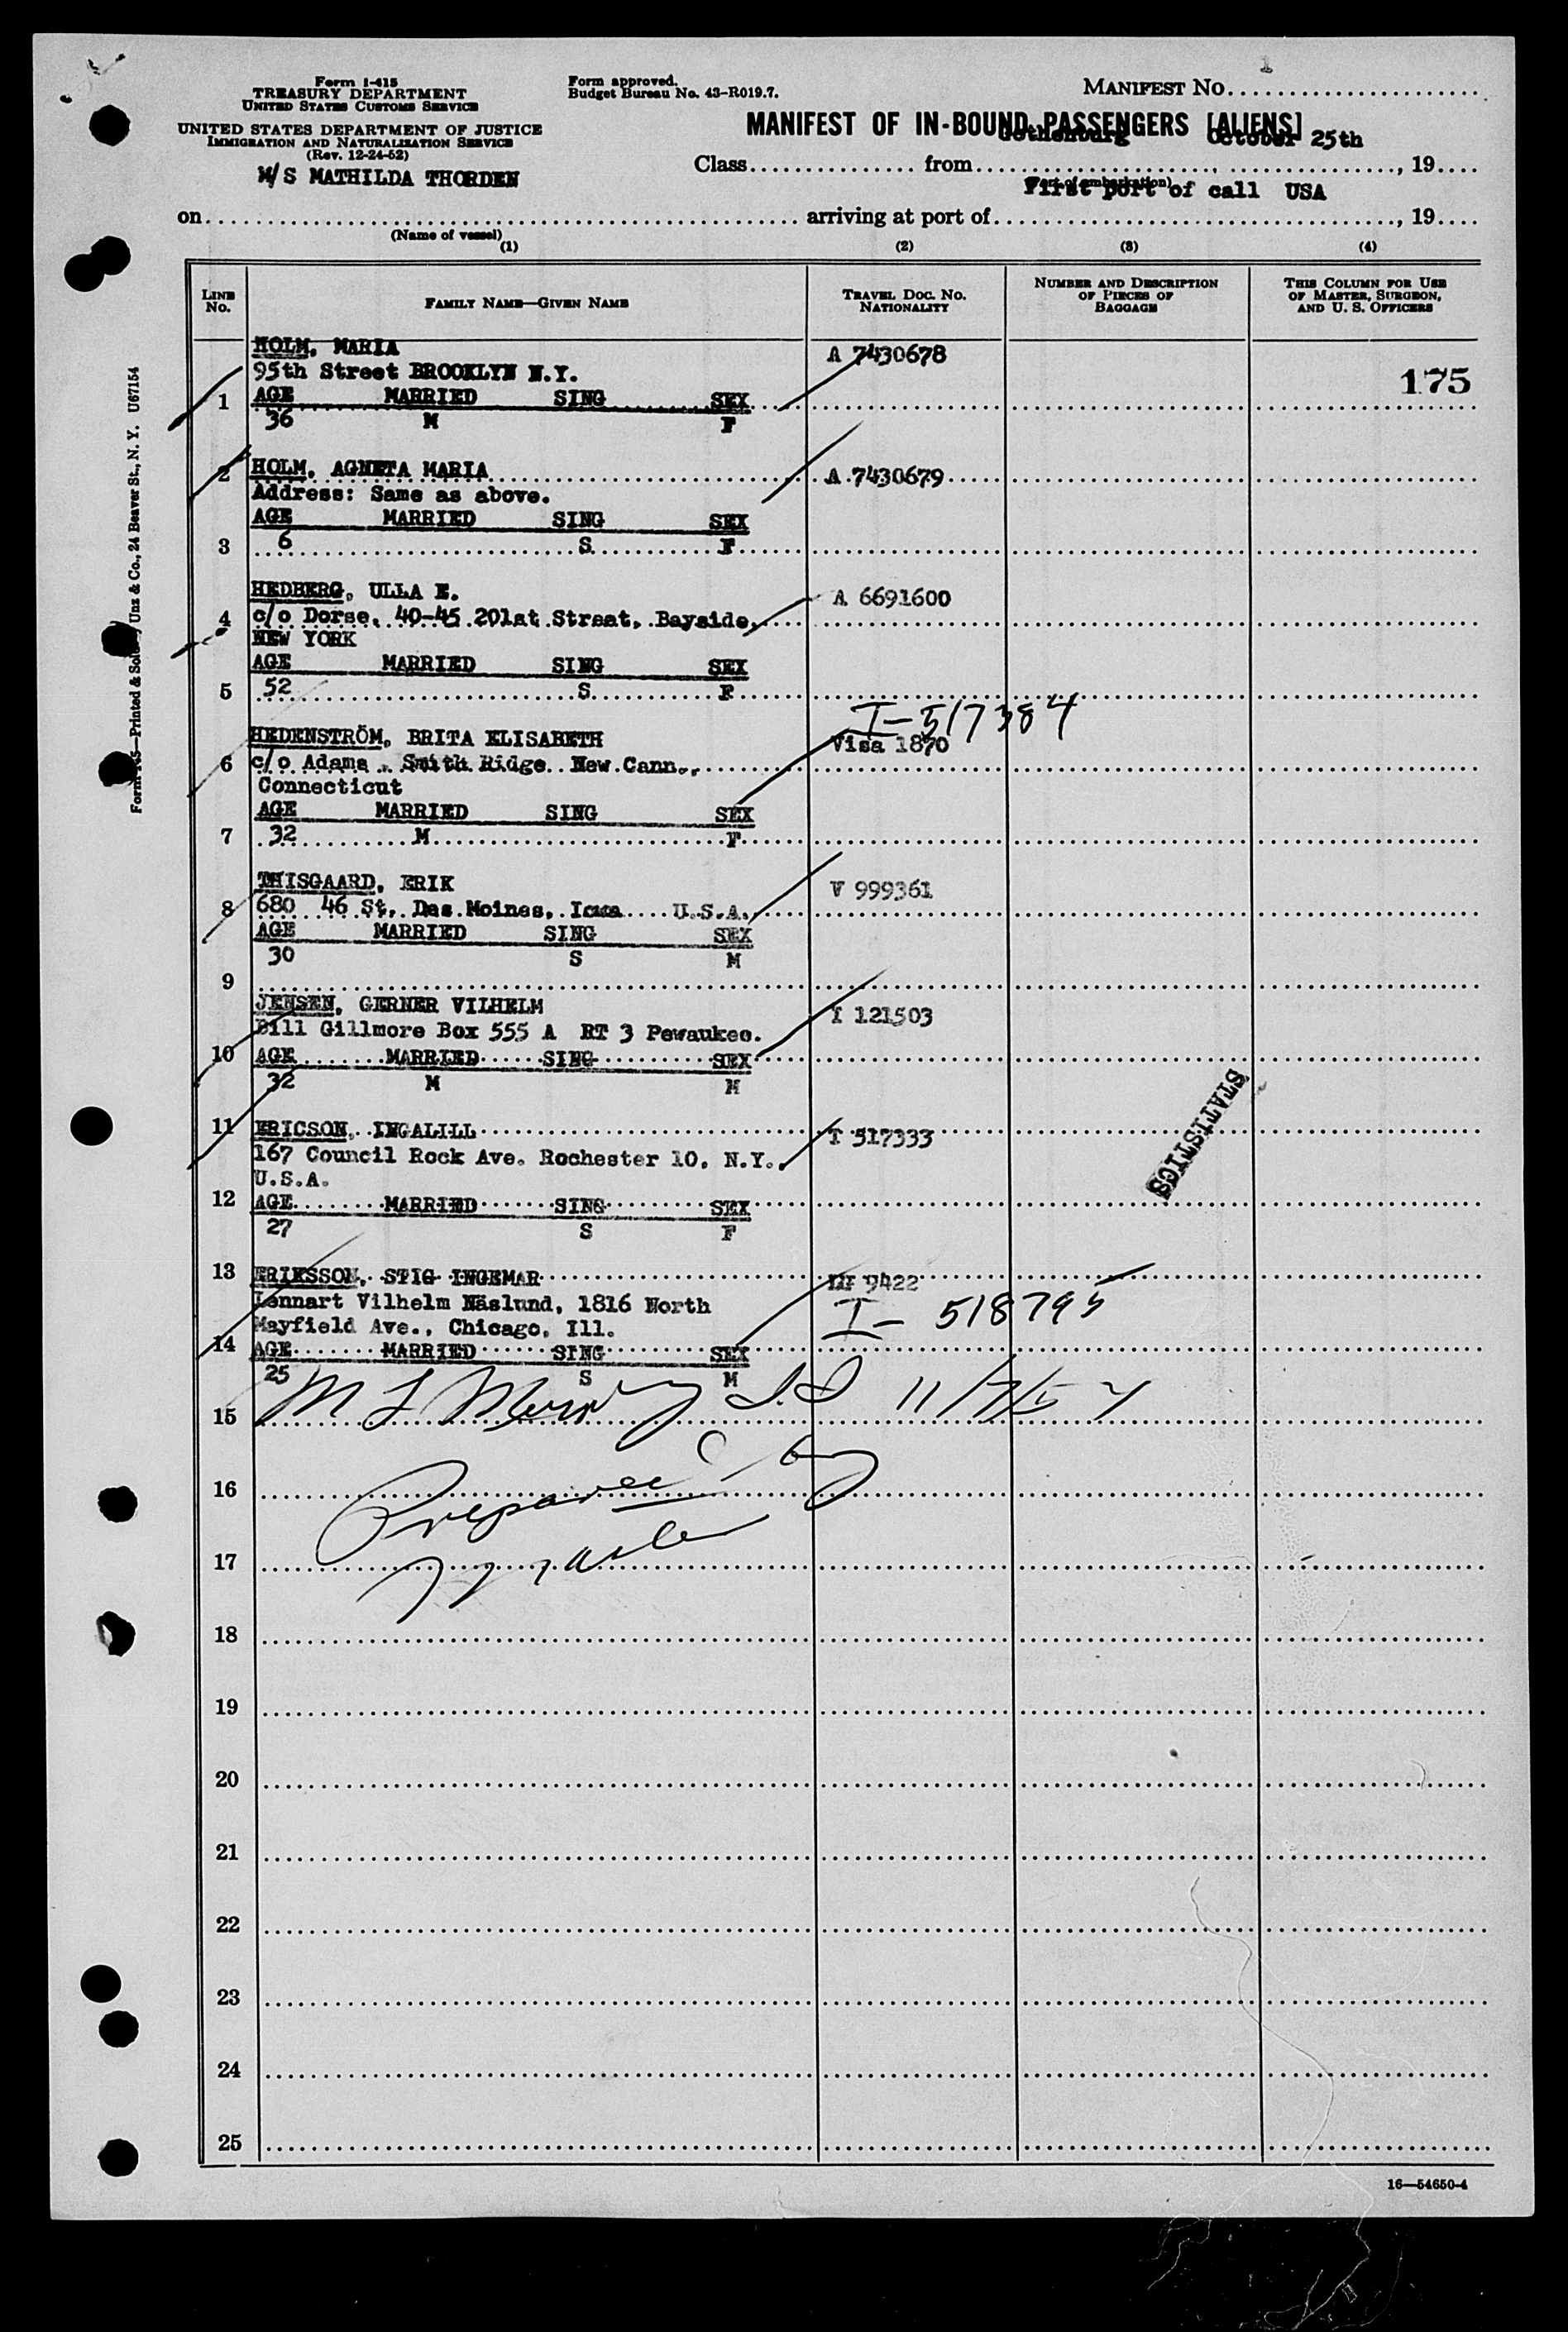 1
Form I-415
TREASURY DEPARTMENT
UNITED STATES CUSTOMS SERVICE
UNITED STATES DEPARTMENT OF JUSTICE
IMMIGRATION AND NATURALIZATION SERVICE
(Rev. 12-24-52)
M/S MATHILDA THORDEN
Form approved.
Budget Bureau No. 43-R019.7.
MANIFEST NO.
MANIFEST OF IN-BOUND PASSENGERS [ALIENS]
Gothenburg October 25th
Class from , 19
(Port of embarkation)
First port of call USA
on arriving at port of , 19
(Name of vessel)
(1) (2) (3) (4)
LINE NO.
FAMILY NAME—GIVEN NAME
TRAVEL DOC. NO. NATIONALITY
NUMBER AND DESCRIPTION OF PIECES OF BAGGAGE
THIS COLUMN FOR USE OF MASTER, SURGEON, AND U. S. OFFICERS
HOLM, MARIA A 7430678
95th Street BROOKLYN N.Y. 175
1 AGE MARRIED SING SEX
36 M F
2 HOLM, AGNETA MARIA A 7430679
Address: Same as above.
AGE MARRIED SING SEX
3 6 S F
HEDBERG, ULLA E. A 6691600
4 c/o Dorse, 40-45 201st Street, Bayside,
NEW YORK
AGE MARRIED SING SEX
5 52 S F
I-517384
HEDENSTRÖM, BRITA ELISABETH Visa 1870
6 c/o Adams Smith Ridge New Cann.,
Connecticut
AGE MARRIED SING SEX
7 32 M F
THISGAARD, ERIK V 999361
8 680 46 St. Des Moines, Iowa U.S.A.
AGE MARRIED SING SEX
30 S M
9
JENSEN, GERNER VILHELM I 121503
Bill Gillmore Box 555 A RT 3 Pewaukee.
10 AGE MARRIED SING SEX
32 M M
11 ERICSON, INGALILL I 517333
167 Council Rock Ave. Rochester 10, N.Y.,
U.S.A.
12 AGE MARRIED SING SEX
27 S F
STATISTICS
13 ERIKSSON, STIG INGEMAR 9422
Lennart Vilhelm Näslund, 1816 North I- 518795
Mayfield Ave., Chicago, Ill.
14 AGE MARRIED SING SEX
25 S M
15 11/7/54
16 Prepared by
17
18
19
20
21
22
23
24
25
16—54650-4
Printed & Sold by Unz & Co., 24 Beaver St., N. Y. U67154